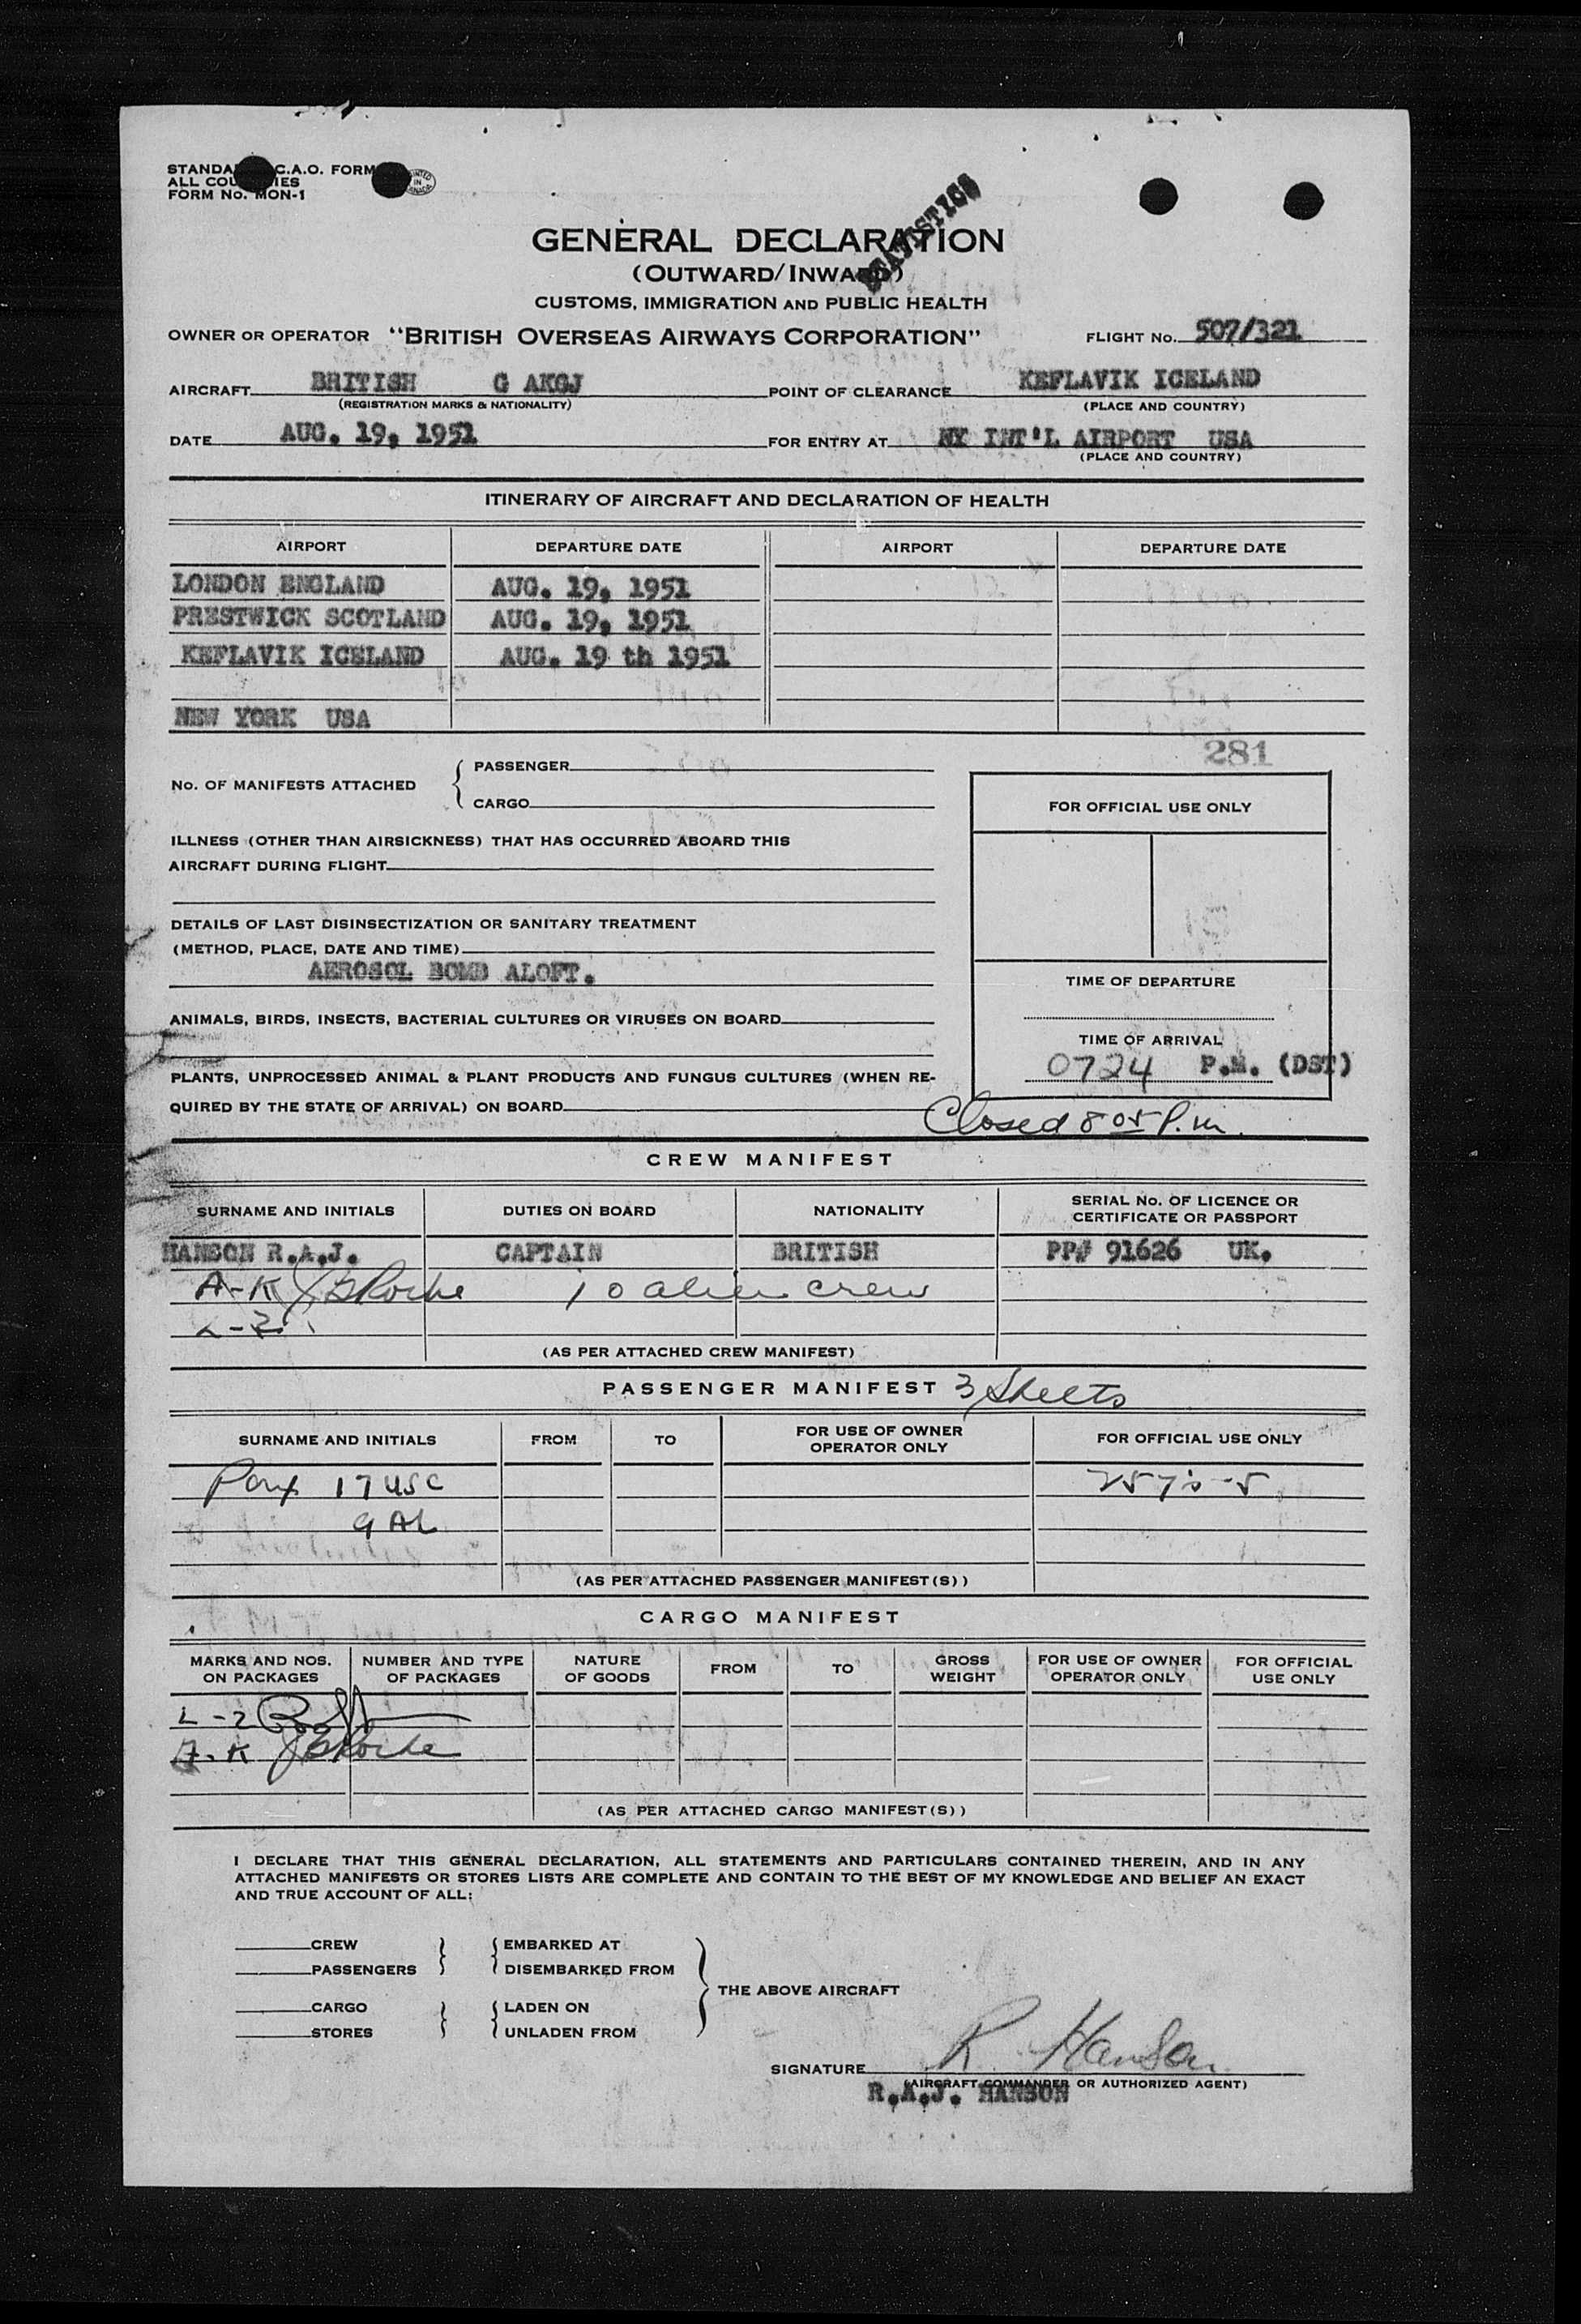 STANDA C.A.O. FORM
ALL COU IES
FORM No. MON-1
PRINTED IN CANADA
STATISTICS
GENERAL DECLARATION
(OUTWARD/INWARD)
CUSTOMS, IMMIGRATION AND PUBLIC HEALTH
OWNER OR OPERATOR "BRITISH OVERSEAS AIRWAYS CORPORATION" FLIGHT No. 507/321
AIRCRAFT BRITISH G AKGJ POINT OF CLEARANCE KEFLAVIK ICELAND
(REGISTRATION MARKS & NATIONALITY) (PLACE AND COUNTRY)
DATE AUG. 19, 1951 FOR ENTRY AT NY INT'L AIRPORT USA
(PLACE AND COUNTRY)
ITINERARY OF AIRCRAFT AND DECLARATION OF HEALTH
AIRPORT DEPARTURE DATE AIRPORT DEPARTURE DATE
LONDON ENGLAND AUG. 19, 1951
PRESTWICK SCOTLAND AUG. 19, 1951
KEFLAVIK ICELAND AUG. 19 th 1951
NEW YORK USA
281
No. OF MANIFESTS ATTACHED { PASSENGER
CARGO
FOR OFFICIAL USE ONLY
ILLNESS (OTHER THAN AIRSICKNESS) THAT HAS OCCURRED ABOARD THIS
AIRCRAFT DURING FLIGHT
DETAILS OF LAST DISINSECTIZATION OR SANITARY TREATMENT
(METHOD, PLACE, DATE AND TIME)
AEROSOL BOMB ALOFT.
TIME OF DEPARTURE
ANIMALS, BIRDS, INSECTS, BACTERIAL CULTURES OR VIRUSES ON BOARD
TIME OF ARRIVAL
0724 P.M. (DST)
PLANTS, UNPROCESSED ANIMAL & PLANT PRODUCTS AND FUNGUS CULTURES (WHEN RE-
QUIRED BY THE STATE OF ARRIVAL) ON BOARD
Closed 8 05 P.m.
CREW MANIFEST
SURNAME AND INITIALS DUTIES ON BOARD NATIONALITY SERIAL No. OF LICENCE OR
CERTIFICATE OR PASSPORT
HANSON R.A.J. CAPTAIN BRITISH PP# 91626 UK.
A-K JBRoche 10 alien crew
L-2
(AS PER ATTACHED CREW MANIFEST)
PASSENGER MANIFEST 3 Sheets
SURNAME AND INITIALS FROM TO FOR USE OF OWNER
OPERATOR ONLY FOR OFFICIAL USE ONLY
17 USC
9 AL
(AS PER ATTACHED PASSENGER MANIFEST(S))
CARGO MANIFEST
MARKS AND NOS.
ON PACKAGES NUMBER AND TYPE
OF PACKAGES NATURE
OF GOODS FROM TO GROSS
WEIGHT FOR USE OF OWNER
OPERATOR ONLY FOR OFFICIAL
USE ONLY
L-2
A-K JBRoche
(AS PER ATTACHED CARGO MANIFEST(S))
I DECLARE THAT THIS GENERAL DECLARATION, ALL STATEMENTS AND PARTICULARS CONTAINED THEREIN, AND IN ANY
ATTACHED MANIFESTS OR STORES LISTS ARE COMPLETE AND CONTAIN TO THE BEST OF MY KNOWLEDGE AND BELIEF AN EXACT
AND TRUE ACCOUNT OF ALL:
CREW EMBARKED AT
PASSENGERS DISEMBARKED FROM
THE ABOVE AIRCRAFT
CARGO LADEN ON
STORES UNLADEN FROM
SIGNATURE R Hanson
(AIRCRAFT COMMANDER OR AUTHORIZED AGENT)
R.A.J. HANSON